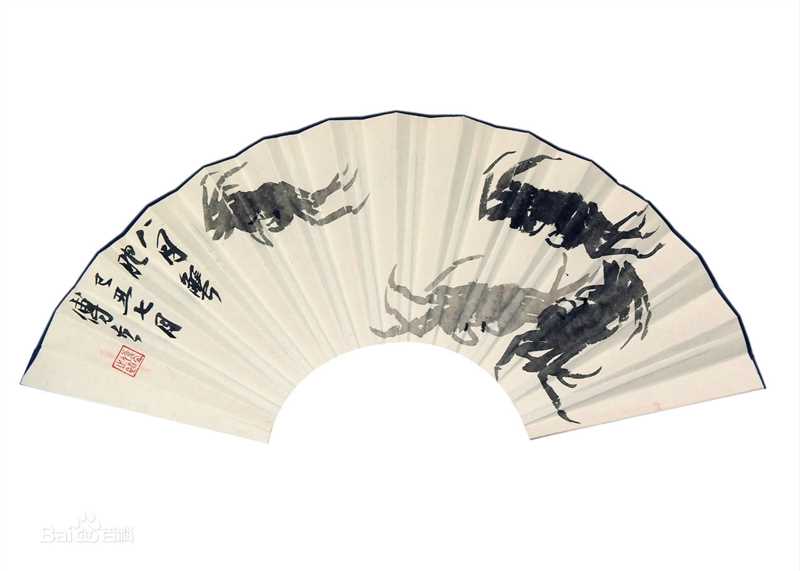 八月蟹
肥
己丑七月
傅
Bai百科